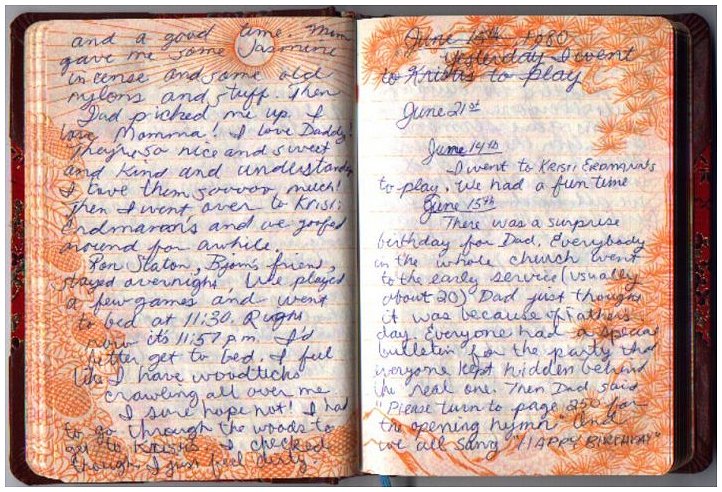 and a good time. Mom
gave me some Jasmine
incense and some old
nylons and stuff. Then
Dad picked me up. I
love Momma! I love Daddy!
They're so nice and sweet
and kind and understanding
I love them sooooo much!
Then I went over to Kristi
Erdmann's and we goofed
around for awhile.
Ron Slaton, Bjorn's friend,
stayed overnight. We played
a few games and went
to bed at 11:30. Right
now its 11:57 p.m. I'd
better get to bed. I feel
like I have woodticks
crawling all over me.
I sure hope not! I had
to go through the woods to
get to Kristi's. I checked
though. I just feel dirty.
June 15th, 1980
Yesterday I went
to Kristi's to play
June 21st
June 14th
I went to Kristi Erdmann's
to play. We had a fun time
June 15th
There was a surprise
birthday for Dad. Everybody
in the whole church went
to the early service (usually
about 20) Dad just thought
it was because of Fathers
day. Everyone had a special
bulletin for the party that
everyone kept hidden behind
the real one. Then Dad said
"Please turn to page 250 for
the opening hymn. And
we all sang "HAPPY BIRTHDAY"